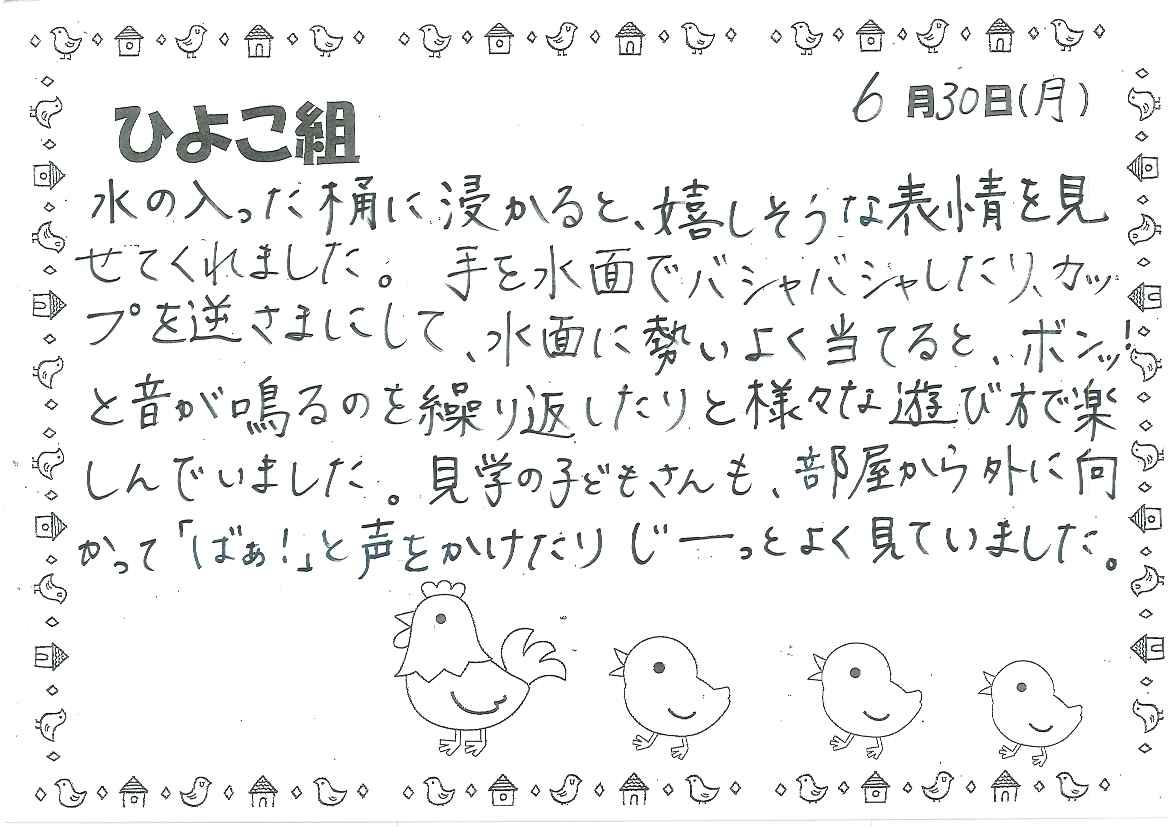 6月30日(月)
ひよこ組
水の入った桶に浸かると、嬉しそうな表情を見
せてくれました。 手を水面でバシャバシャしたり、カッ
プを逆さまにして、水面に勢いよく当てると、ボンッ!
と音が鳴るのを繰り返したりと様々な遊び方で楽
しんでいました。見学の子どもさんも、部屋から外に向
かって「ばぁ!」と声をかけたりじーっとよく見ていました。